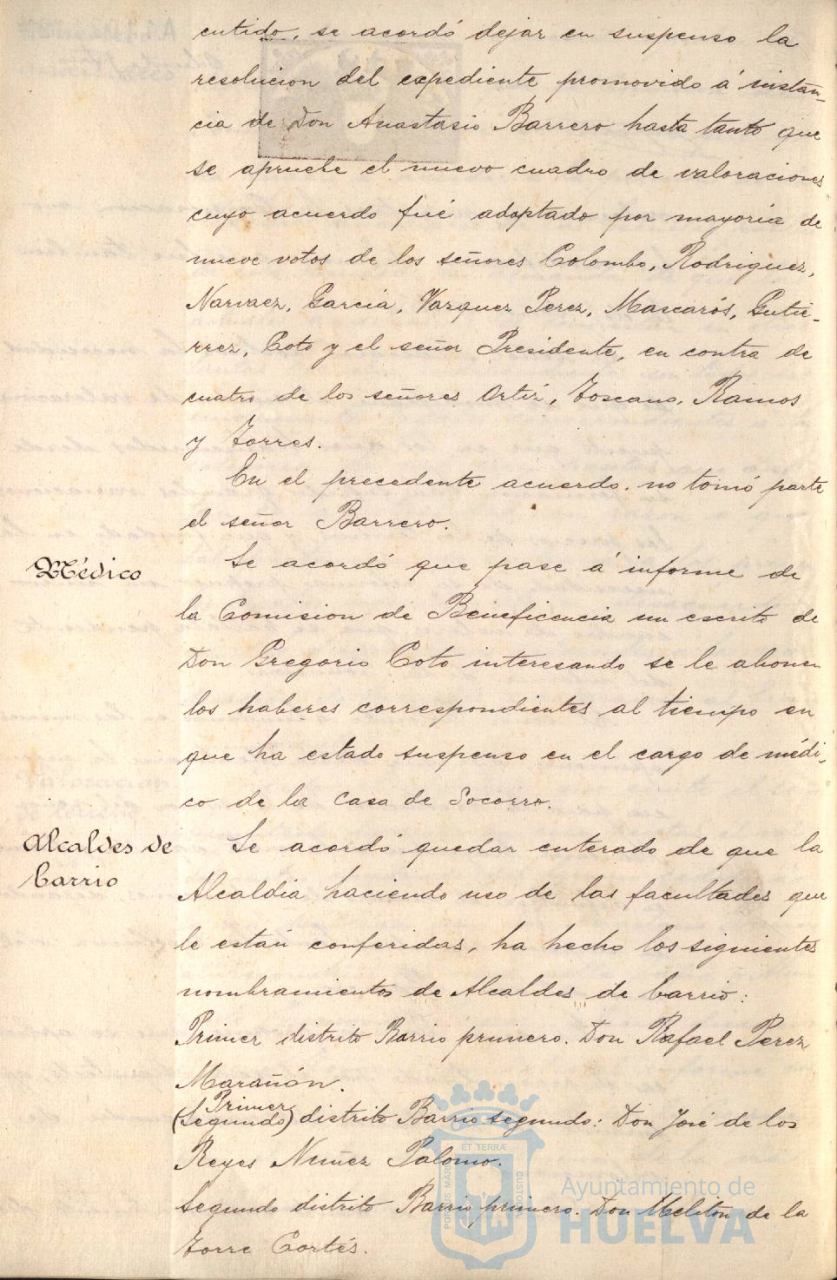 cutido, se acordó dejar en suspenso la
resolucion del expediente promovido á instan-
cia de Don Anastasio Barrero hasta tanto que
se apruebe el nuevo cuadro de valoraciones
cuyo acuerdo fué adoptado por mayoria de
nueve votos de los señores Colombo, Rodriguez,
Narvaez, Garcia, Vazquez Perez, Mascarós, Gutie-
rrez, Coto y el señor Presidente, en contra de
cuatro de los señores Ortiz, Toscano, Ramos
y Torres.
En el precedente acuerdo no tomó parte
el señor Barrero.
Médico
Se acordó que pase á informe de
la Comision de Beneficencia un escrito de
Don Gregorio Coto interesando se le abonen
los haberes correspondientes al tiempo en
que ha estado suspenso en el cargo de médi-
co de la Casa de Socorro.
Alcaldes de
barrio
Se acordó quedar enterado de que la
Alcaldia haciendo uso de las facultades que
le están conferidas, ha hecho los siguientes
nombramientos de Alcaldes de barrio:
Primer distrito Barrio primero. Don Rafael Perez
Marañón.
Primer
(Segundo) distrito Barrio segundo: Don José de los
Reyes Nuñez Palomo.
Segundo distrito Barrio primero. Don Meliton de la
Torre Cortés.
ET TERRÆ
PORTUS MARIS
CUSTODIA
Ayuntamiento de
HUELVA